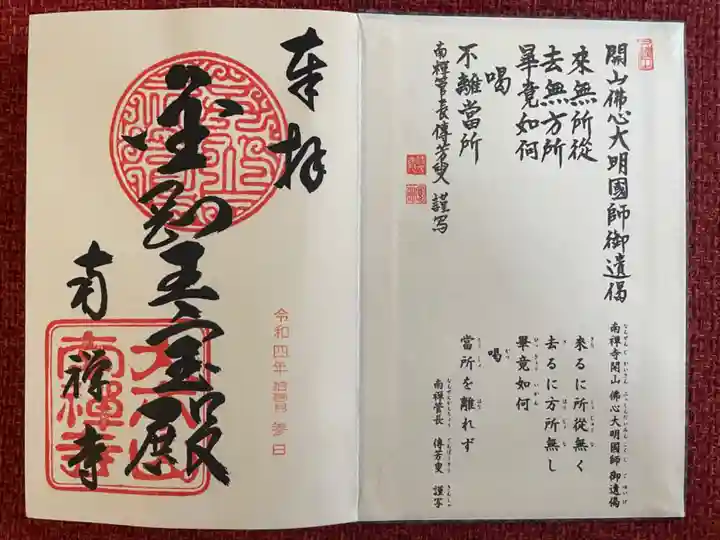 開山佛心大明國師御遺偈
來無所從
去無方所
畢竟如何
喝
不離當所
南禅管長傳芳叟 謹写
南禪寺開山 佛心大明國師 御遺偈
來るに所從無く
去るに方所無し
畢竟如何
喝
當所を離れず
南禅管長 傳芳叟 謹写
奉拝
金剛王宝殿
南禅寺
令和四年 日
南禪寺